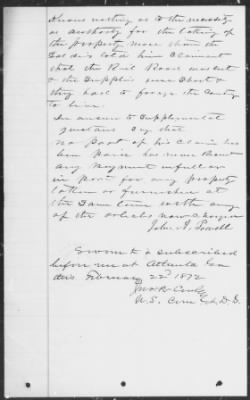 Knows nothing as to the necessity
or authority for the taking of
the property more than the
Soldiers told him Claimant
that the Rail Road was cut
& the Supplies was Short &
they had to forage the Country
to live.
In answer to Supplemental
questions Say that
no part of his Claim has
been paid has never Recd
any Payment in full or
in part for any property
taken or furnished at
the Same time with any
of the articles now charged
John A. Powell
Sworn to & subscribed
before me at Atlanta Ga
this February 22d 1872
U.S. Com